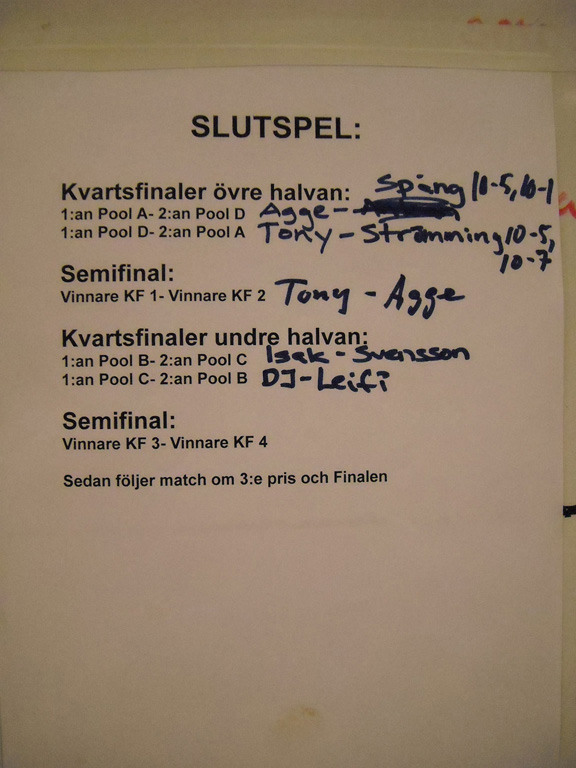 SLUTSPEL:
Kvartsfinaler övre halvan: Spång 10-5, 10-1
1:an Pool A- 2:an Pool D Agge-
1:an Pool D- 2:an Pool A Tony - Strömming 10-5,
10-7
Semifinal:
Vinnare KF 1- Vinnare KF 2 Tony - Agge
Kvartsfinaler undre halvan:
1:an Pool B- 2:an Pool C Isak - Svensson
1:an Pool C- 2:an Pool B DJ-Leifi
Semifinal:
Vinnare KF 3- Vinnare KF 4
Sedan följer match om 3:e pris och Finalen